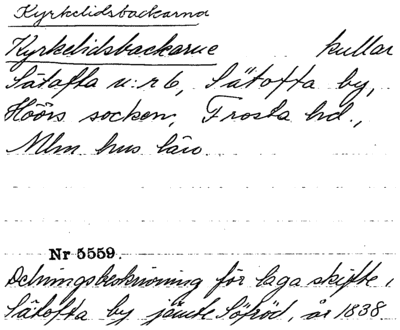 Kyrkelidsbackarna
Kyrkelidsbackarne kullar
Sätofta n:r 6, Sätofta by,
Höörs socken, Frosta hd.,
Mlm hus län.
Nr 5559.
Delningsbeskrivning för laga skifte i
Sätofta by jämte Söfröd, år 1838.